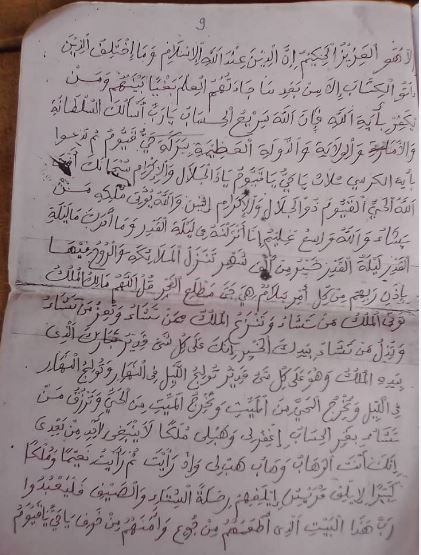 9
لا هو العزيز الحكيم إن الدين عند الله الإسلام وما إختلف الذين
أوتوا الكتاب إلا من بعد ما جاءتهم العلم بغيا بينهم ومن
يكفر بأية الله فإن الله سريع الحساب يارب أسألك السلطانة
والولاية والدولة العظيمة ببركة حي قيوم ثم تدعوا
بأية الكرسي ثلاث ياحي ياقيوم ياذا الجلال والإكرام
الله الحي القيوم ذو الجلال والإكرام والله يؤتي ملكه من
يشاء والله واسع عليم إنا أنزلنه في ليلة القدر وما أدرك ما ليلة
القدر ليلة القدر خير من ألف شهر تنزل الملائكة والروح فيها
بإذن ربهم من كل أمر سلام هي حتى مطلع الفجر قل اللهم مالك الملك
توتي الملك من تشاء وتنزع الملك ممن تشاء وتعز من تشاء
وتذل من تشاء بيدك الخير إنك على كل شئ قدير تبارك الذي
بيده الملك وهو على كل شئ قدير تولج الليل في النهار وتولج النهار
في الليل وتخرج الحي من الميت وتخرج الميت من الحي وترزق من
تشاء بغير الحساب إغفرلي وهبلي ملكا لا ينبغى لأحد من بعدى
إنك أنت الوهاب وهاب هبلي وإذ رأيت ثم رأيت نعيما وملكا
كبيرا لإيلف قريش إيلفهم رحلة الشتاء والصيف فليعبدوا
رب هذا البيت الذي أطعمهم من جوع وأمنهم من خوف ياحي ياقيوم